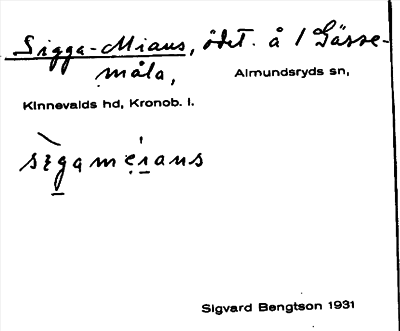 Sigga-Miaus, ödet. å 1 Gässe-
måla,
Almundsryds sn,
Kinnevalds hd, Kronob. l.
Sigvard Bengtson 1931